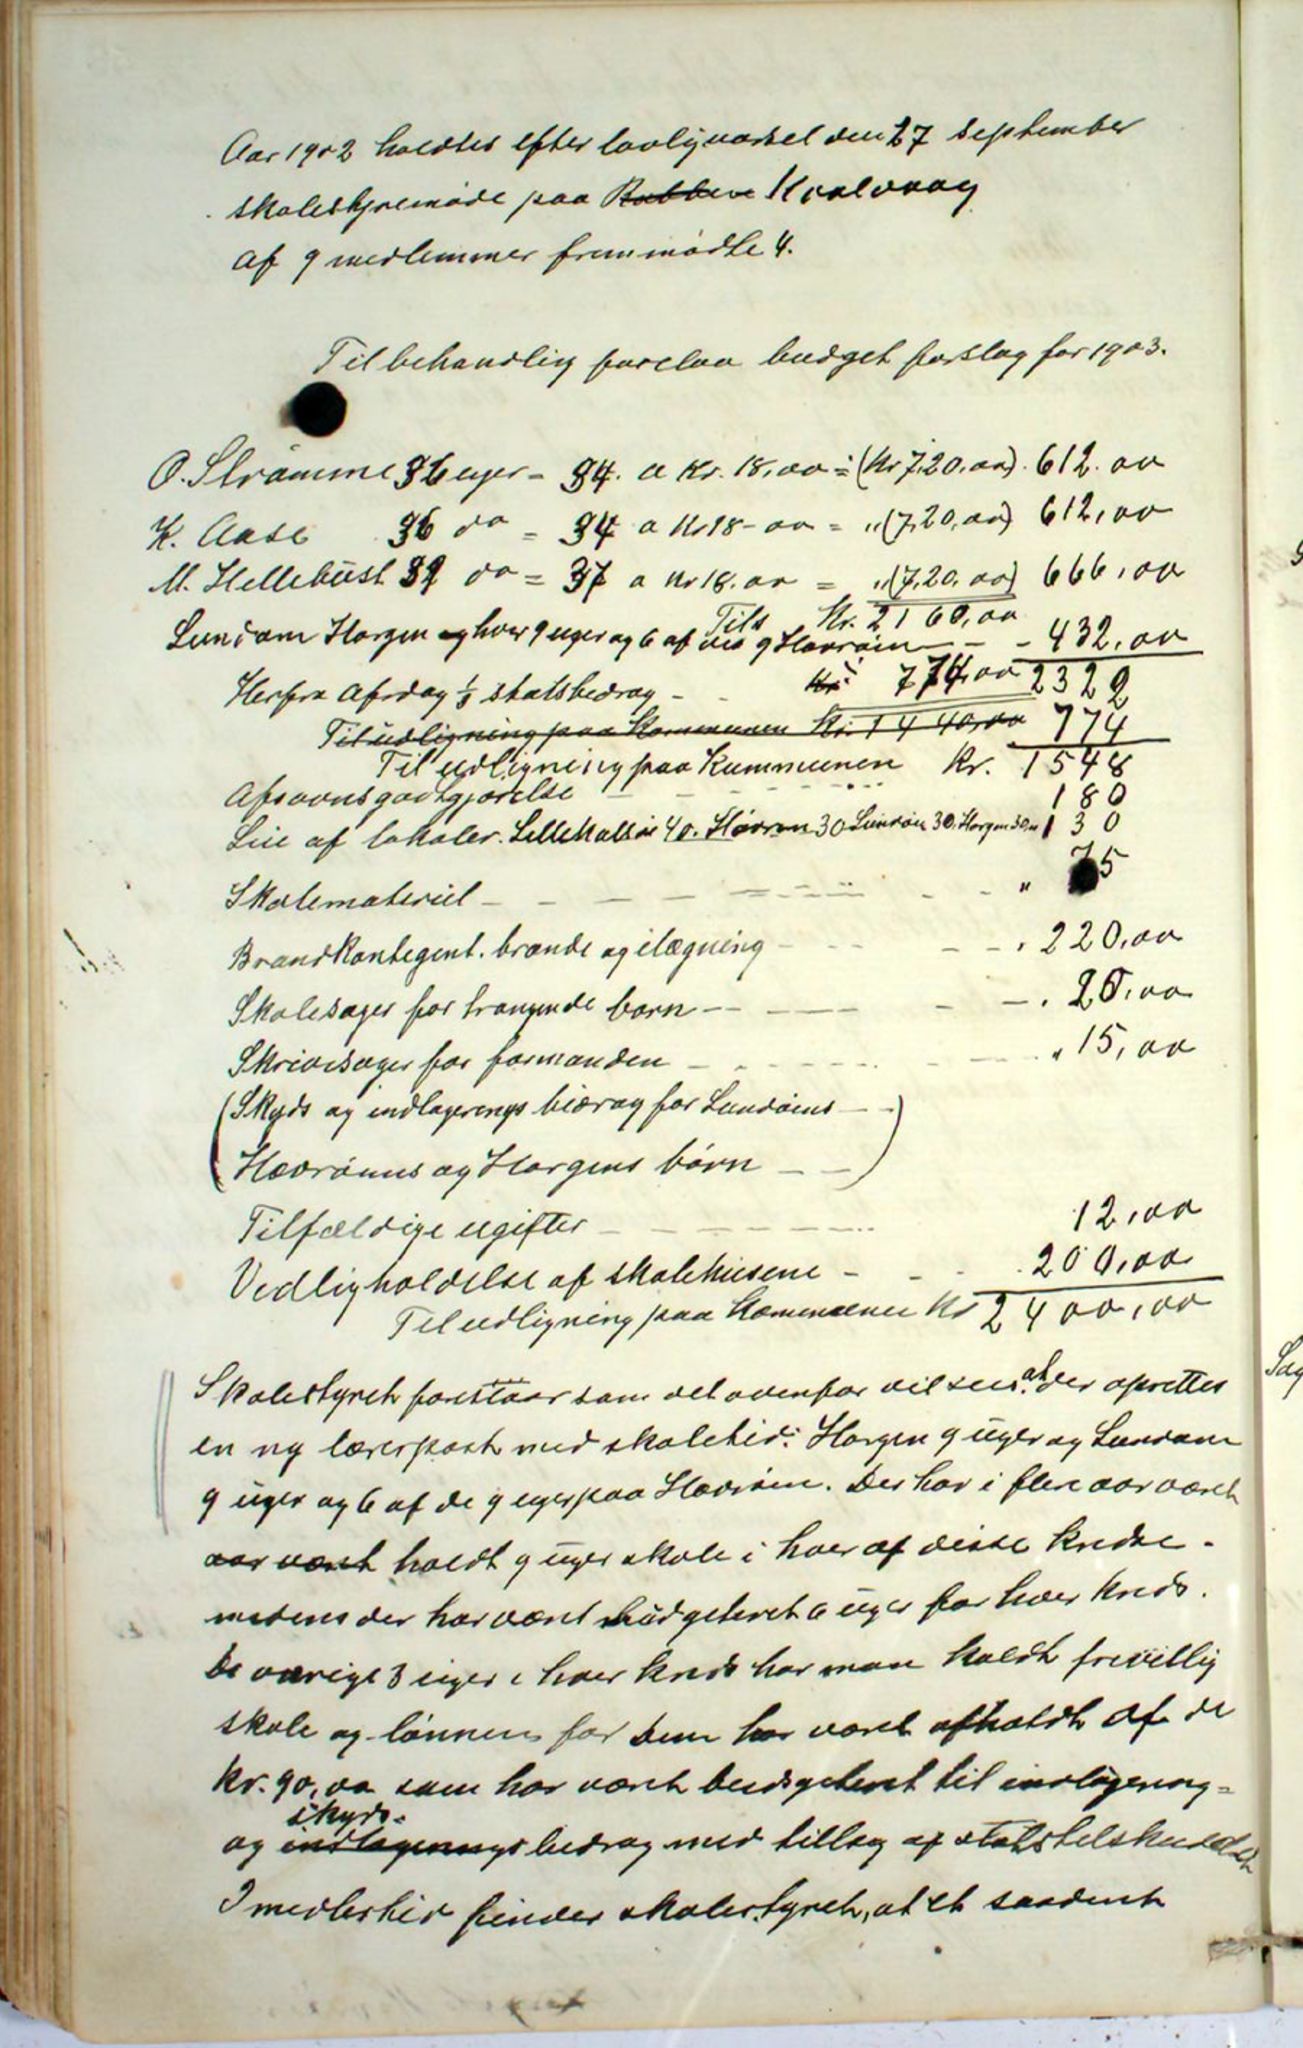 Aar 1902 holdtes efter lovlig varsel den 27 September
skolestyremøde paa Rabben Kvalvaag
af 9 medlemmer fremmødte 4.
Til behandlig forelaa budget forslag for 1903.
O. Strømme 36 uger = 34. a Kr. 18,00 = (Kr 7,20,00). 612.00
K. Aase 36 do = 34 a Kr 18-00 = „ (7,20,00) 612,00
M. Hellebust 39 do = 37 a Kr 18.00 = „ (7,20,00) 666,00
Tils Kr. 2160,00
Lundøen Horgen og hver 9 uger og 6 af de 9 Havrøen - - 432,00
Herfra Afrdag 1/3 statsbedrag - Kr. 774,00 2322
Til udligning paa Kommunen Kr. 1440,00 774
Til udligning paa Kummunen Kr. 1548
Afsavnsgodtgjørelse 180
Leie af lokaler. Lillekalsøi 40. Havrøen 30 Lundøen 30. Horgen 30,„ 130
Skolemateriel - - - „ 75
Brandkontegent. brænde og ilægning - - - 220,00
Skolesager for trængende børn - - - 20,00
Skrivesager for formanden - - - „ 15,00
(Skyds og indlagerings bidrag for Lundøens - -)
Havrøens og Horgens børn - -
Tilfældige ugifter - - - 12,00
Vedligholdelse af skolehusene - - - 200,00
Til udligning paa Kommunen Kr 2400,00
Skolestyret foreslaar som det ovenfor vil sees at der oprettes
en ny lærerpost med skoletid: Horgen 9 uger og Lundøen
9 uger og 6 af de 9 uger paa Havrøen. Der har i flere aar været
aar været holdt 9 uger skole i hver af disse kredse.
medens der har været budgeteret 6 uger for hver kreds.
De øvrige 3 uger i hver kreds har man holdt frivillig
skole og lønnen for dem har været afholdt af de
Kr. 90,00 som har været budsgeteret til indlagering=
skyds.
og indlagerings bedrag med tillæg af statstilskuddet
Imedlertid finder skolestyret, at et saadent